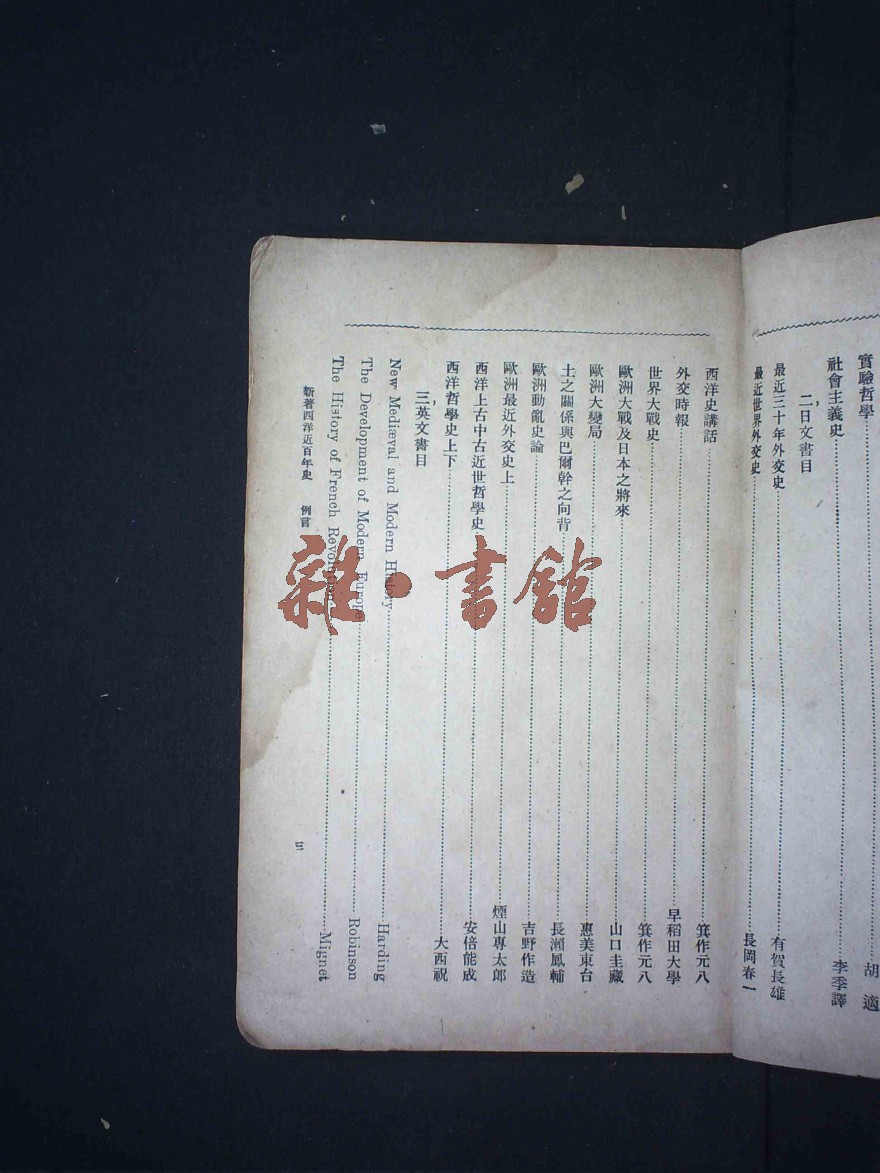 實驗哲學 胡適
社會主義史 李季譯
二，日文書目
最近三十年外交史 有賀長雄
最近世界外交史 長岡春一
西洋史講話 箕作元八
外交時報 早稻田大學
世界大戰史 箕作元八
歐洲大戰及日本之將來 山口圭藏
歐洲大變局 惠美東台
土之關係與巴爾幹之向背 長瀨鳳輔
歐洲動亂史論 吉野作造
歐洲最近外交史上 煙山專太郎
西洋上古中古近世哲學史 安倍能成
西洋哲學史上下 大西祝
三，英文書目
New Mediæval and Modern History Harding
The Development of Modern Europe Robinson
The History of French Revolution Mignet
新著西洋近百年史 例言
三
雜·書館